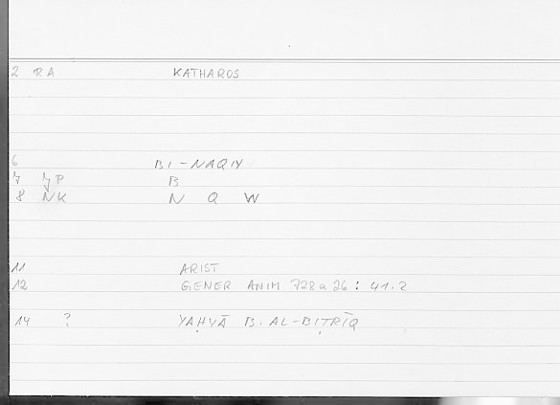 2 RA KATHAROS
6 BI-NAQIY
7 ȷP B
8 NK N Q W
11 ARIST
12 GENER ANIM 728a26: 41.2
14 ? YAḤYĀ B. AL-BIṬRĪQ